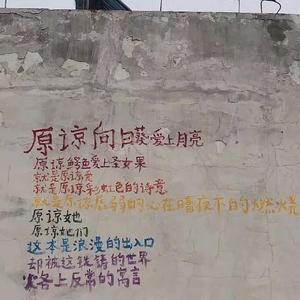 原谅向日葵爱上月亮
原谅鳄鱼爱上圣女果
就是原谅爱
就是原谅彩虹色的诗意
就是原谅脆弱的心在暗夜下的燃烧
原谅她
原谅她们
这本是浪漫的出入口
却被这铁铸的世界
火各上反常的寓言